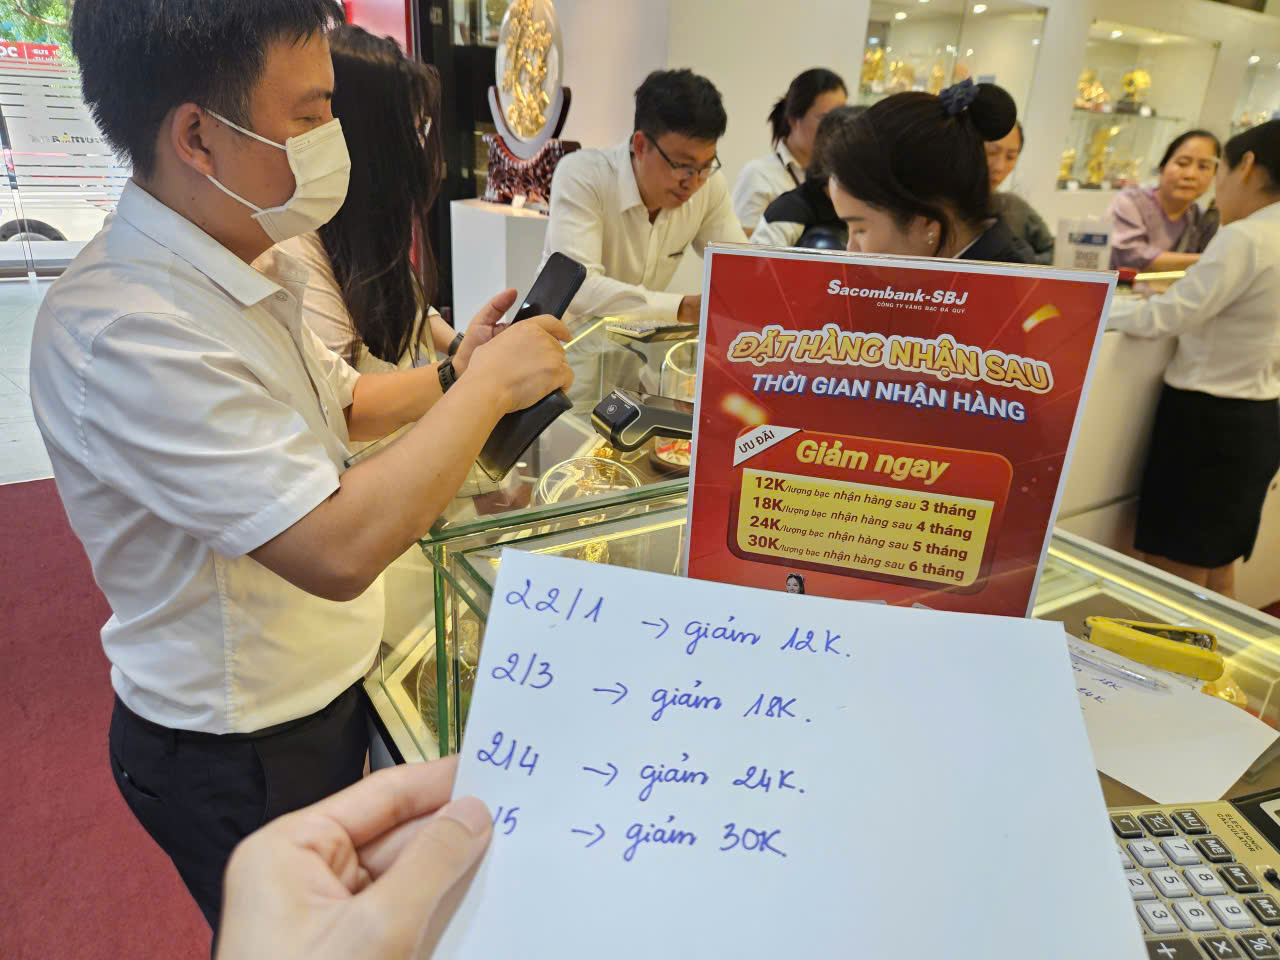 Sacombank-SBJ
CÔNG TY VÀNG BẠC ĐÁ QUÝ
ĐẶT HÀNG NHẬN SAU
THỜI GIAN NHẬN HÀNG
ƯU ĐÃI
Giảm ngay
12K/lượng bạc nhận hàng sau 3 tháng
18K/lượng bạc nhận hàng sau 4 tháng
24K/lượng bạc nhận hàng sau 5 tháng
30K/lượng bạc nhận hàng sau 6 tháng
22/1 → giảm 12K.
2/3 → giảm 18K.
2/4 → giảm 24K.
/5 → giảm 30K.
18K
24K
ELECTRONIC
CALCULATOR
MU
M-
M+
7
8
9
4
5
6
2
3
+
×
%